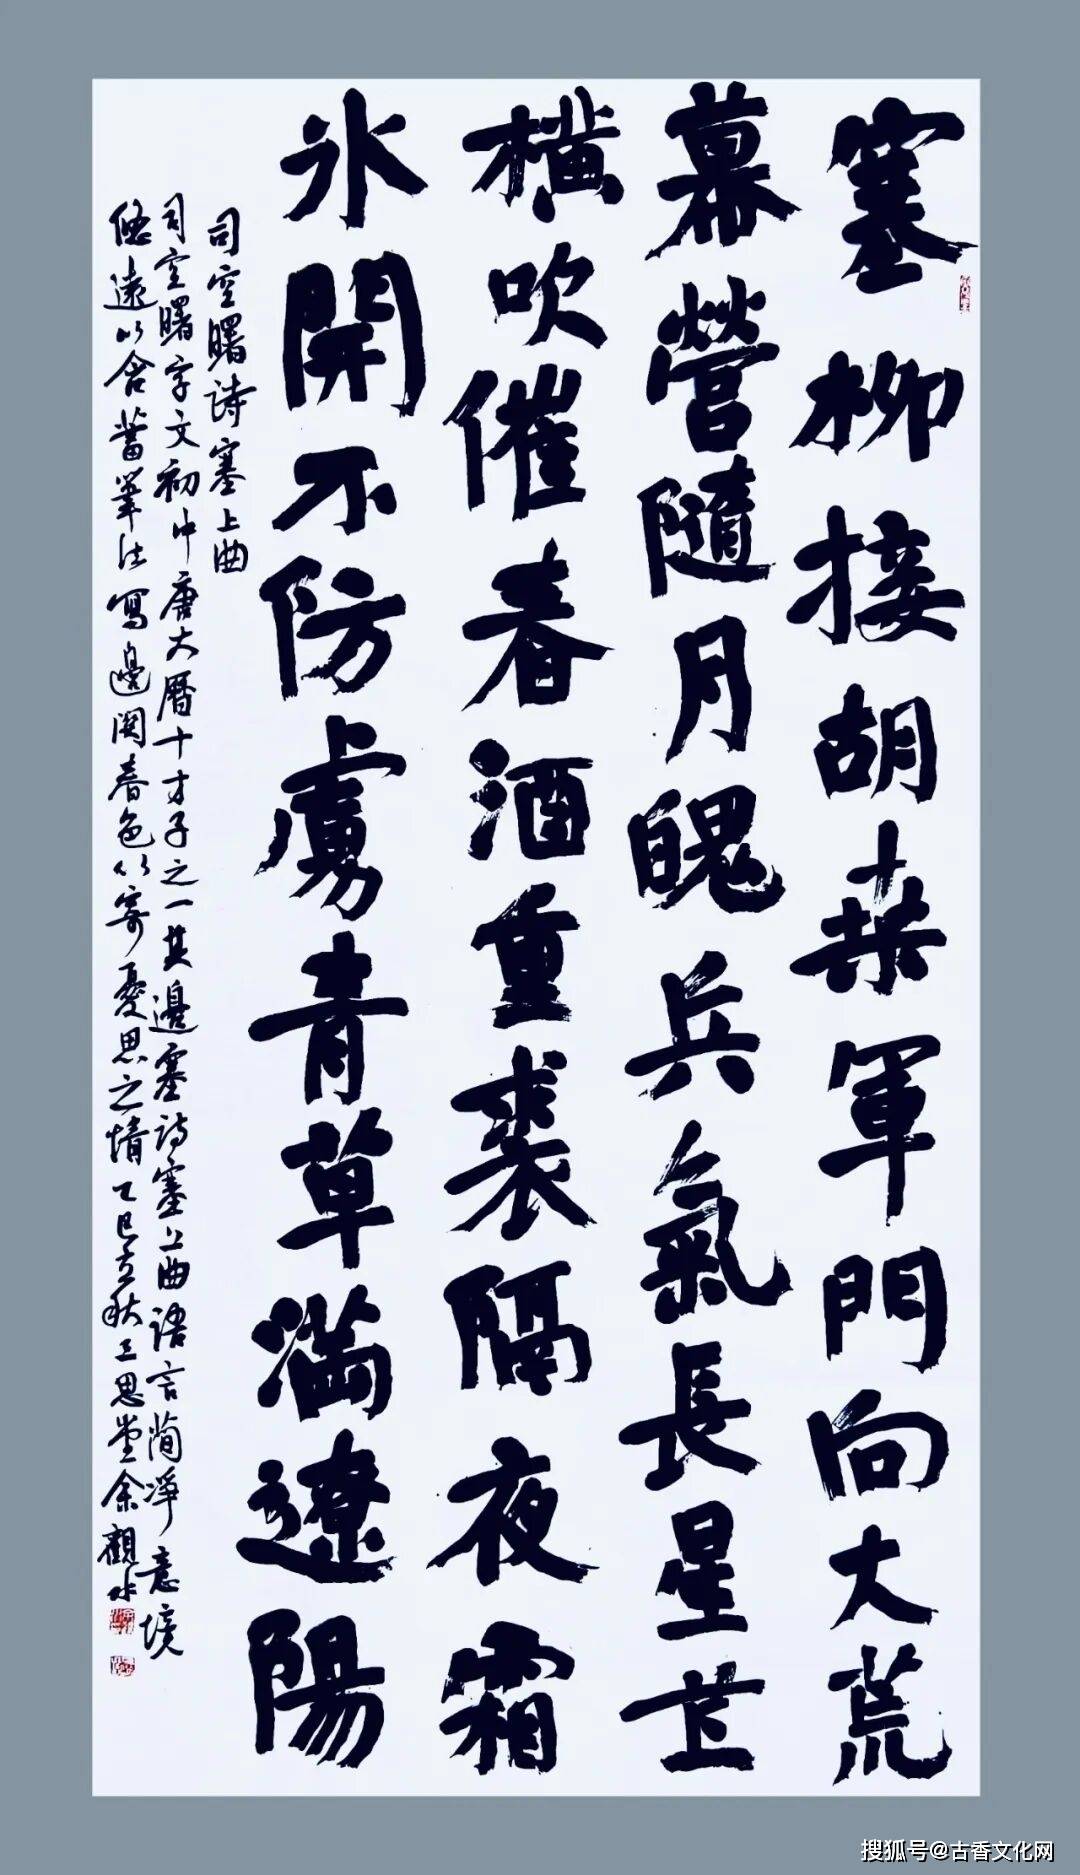 塞柳接胡桑軍門向大荒
幕營隨月魄兵氣長星芒
橫吹催春酒重裘隔夜霜
氷開不防虜青草滿遼陽
司空曙詩塞上曲
司空曙字文初中唐大曆十才子之一其邊塞詩塞上曲語言簡淨意境
悠遠以含蓄筆法寫邊関春色以寄憂思之情乙巳立秋三思堂余觀水
搜狐号@古香文化网